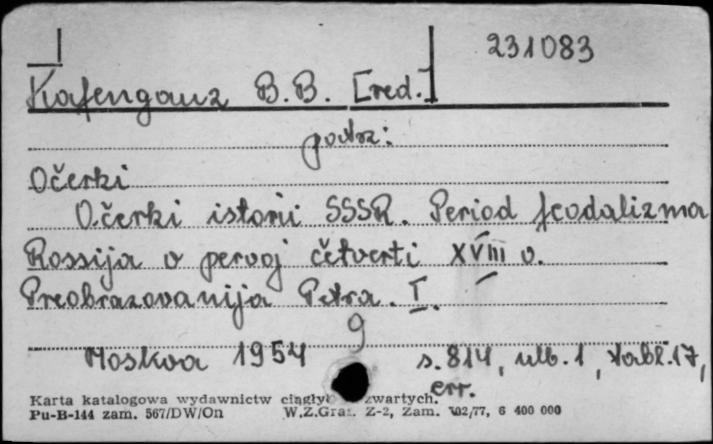 231083
Kafengauz B.B. [red.]
patrz:
Očerki
Očerki istorii SSSR. Period feodalizma
Rossija v pervoj četverti XVIII v.
Preobrazovanija Petra. I.
9
Moskva 1954 s. 814, ulb. 1, tabl. 17,
err.
Karta katalogowa wydawnictw ciągłych zwartych.
Pu-B-144 zam. 567/DW/On W.Z.Graf. Z-2, Zam. 702/77, 6 400 000